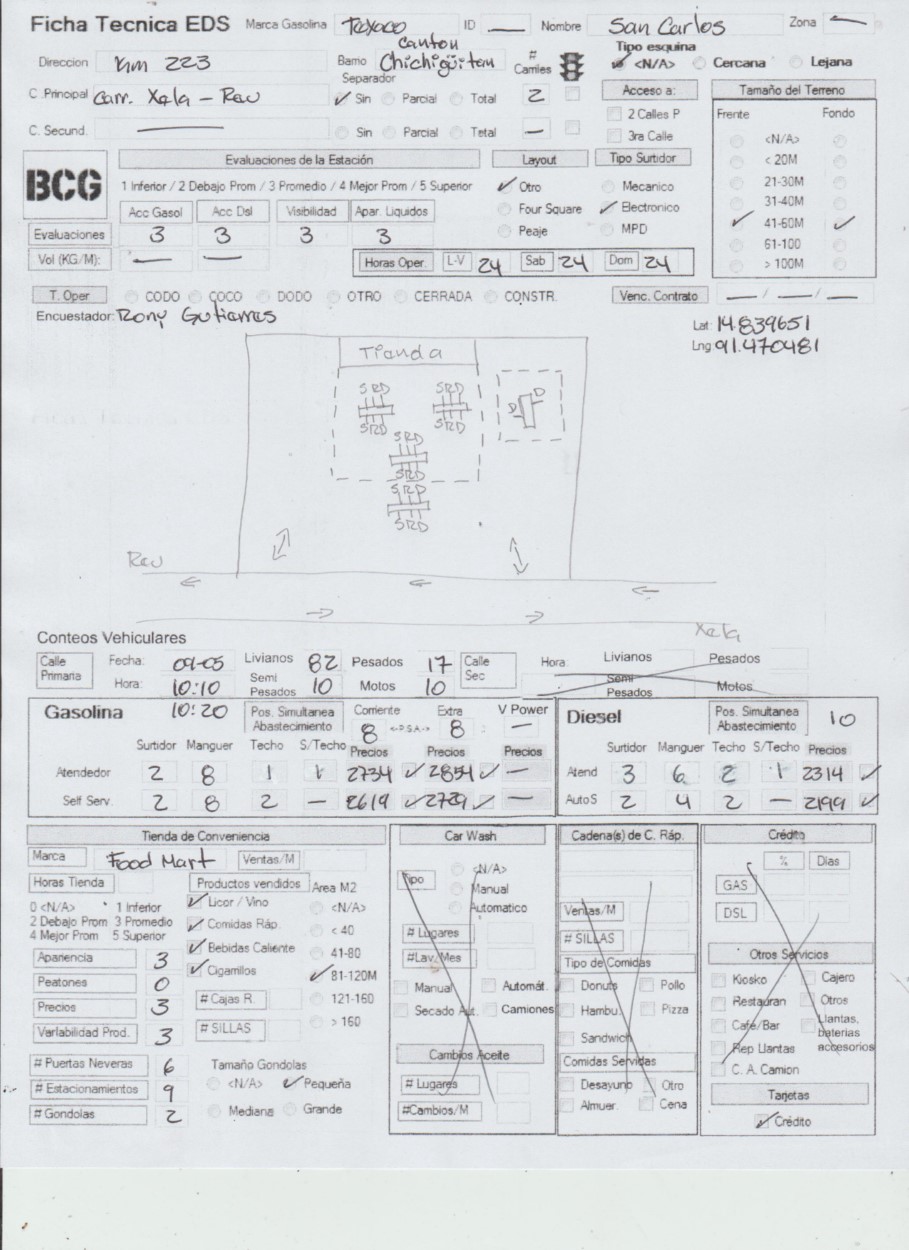 Ficha Tecnica EDS Marca Gasolina Texaco ID — Nombre San Carlos Zona —
Direccion Km 223 Barrio Canton Chichigüitan # Carriles Tipo esquina <N/A> Cercana Lejana
Separador
C .Principal Carr. Xela - Reu Sin Parcial Total 2 Acceso a: Tamaño del Terreno
2 Calles P Frente Fondo
C. Secund. — Sin Parcial Total — 3ra Calle <N/A>
BCG Evaluaciones de la Estación Layout Tipo Surtidor < 20M
1 Inferior / 2 Debajo Prom / 3 Promedio / 4 Mejor Prom / 5 Superior Otro Mecanico 21-30M
31-40M
Acc Gasol Acc Dsl Visibilidad Apar. Liquidos Four Square Electronico 41-60M
Evaluaciones 3 3 3 3 Peaje MPD 61-100
Vol (KG/M): — — Horas Oper. L-V 24 Sab 24 Dom 24 > 100M
T. Oper CODO COCO DODO OTRO CERRADA CONSTR. Venc. Contrato — / — / —
Encuestador: Rony Gutierres
Lat: 14.839651
Lng 91.470481
Tienda
SRD SRD D D
SRD SRD
SRD
SRD
SRD
SRD
Reu
Xela
Conteos Vehiculares
Calle Primaria Fecha: 09-05 Livianos 82 Pesados 17 Calle Sec Hora Livianos Pesados
Hora: 10:10 Semi Pesados 10 Motos 10 Semi Pesados Motos
Gasolina 10:20 Pos. Simultanea Abastecimiento Corriente 8 <-P.S.A.-> Extra 8 V Power — Diesel Pos. Simultanea Abastecimiento 10
Surtidor Manguer Techo S/Techo Precios Precios Precios Surtidor Manguer Techo S/Techo Precios
Atendedor 2 8 1 1 2734 2854 — Atend 3 6 2 1 2314
Self Serv. 2 8 2 — 2619 2729 — AutoS 2 4 2 — 2199
Tienda de Conveniencia Car Wash Cadena(s) de C. Ráp. Crédito
Marca Food Mart Ventas/M Tipo <N/A> % Dias
Horas Tienda Productos vendidos Area M2 Manual GAS
0 <N/A> 1 Inferior Licor / Vino <N/A> Automatico Ventas/M DSL
2 Debajo Prom 3 Promedio Comidas Ráp. < 40 # Lugares # SILLAS
4 Mejor Prom 5 Superior Bebidas Caliente 41-80 #Lav. Mes Tipo de Comidas Otros Servicios
Apariencia 3 Cigarrillos 81-120M Manual Automát. Donuts Pollo Kiosko Cajero
Peatones 0 # Cajas R. 121-160 Secado Aut. Camiones Hambu. Pizza Restauran Otros
Precios 3 # SILLAS > 160 Sandwich Café/Bar Llantas, baterias accesorios
Variabilidad Prod. 3 Cambios Aceite Comidas Servidas Rep Llantas
# Puertas Neveras 6 Tamaño Gondolas # Lugares Desayuno Otro C. A. Camion
# Estacionamientos 9 <N/A> Pequeña #Cambios/M Almuer. Cena Tarjetas
# Gondolas 2 Mediana Grande Crédito